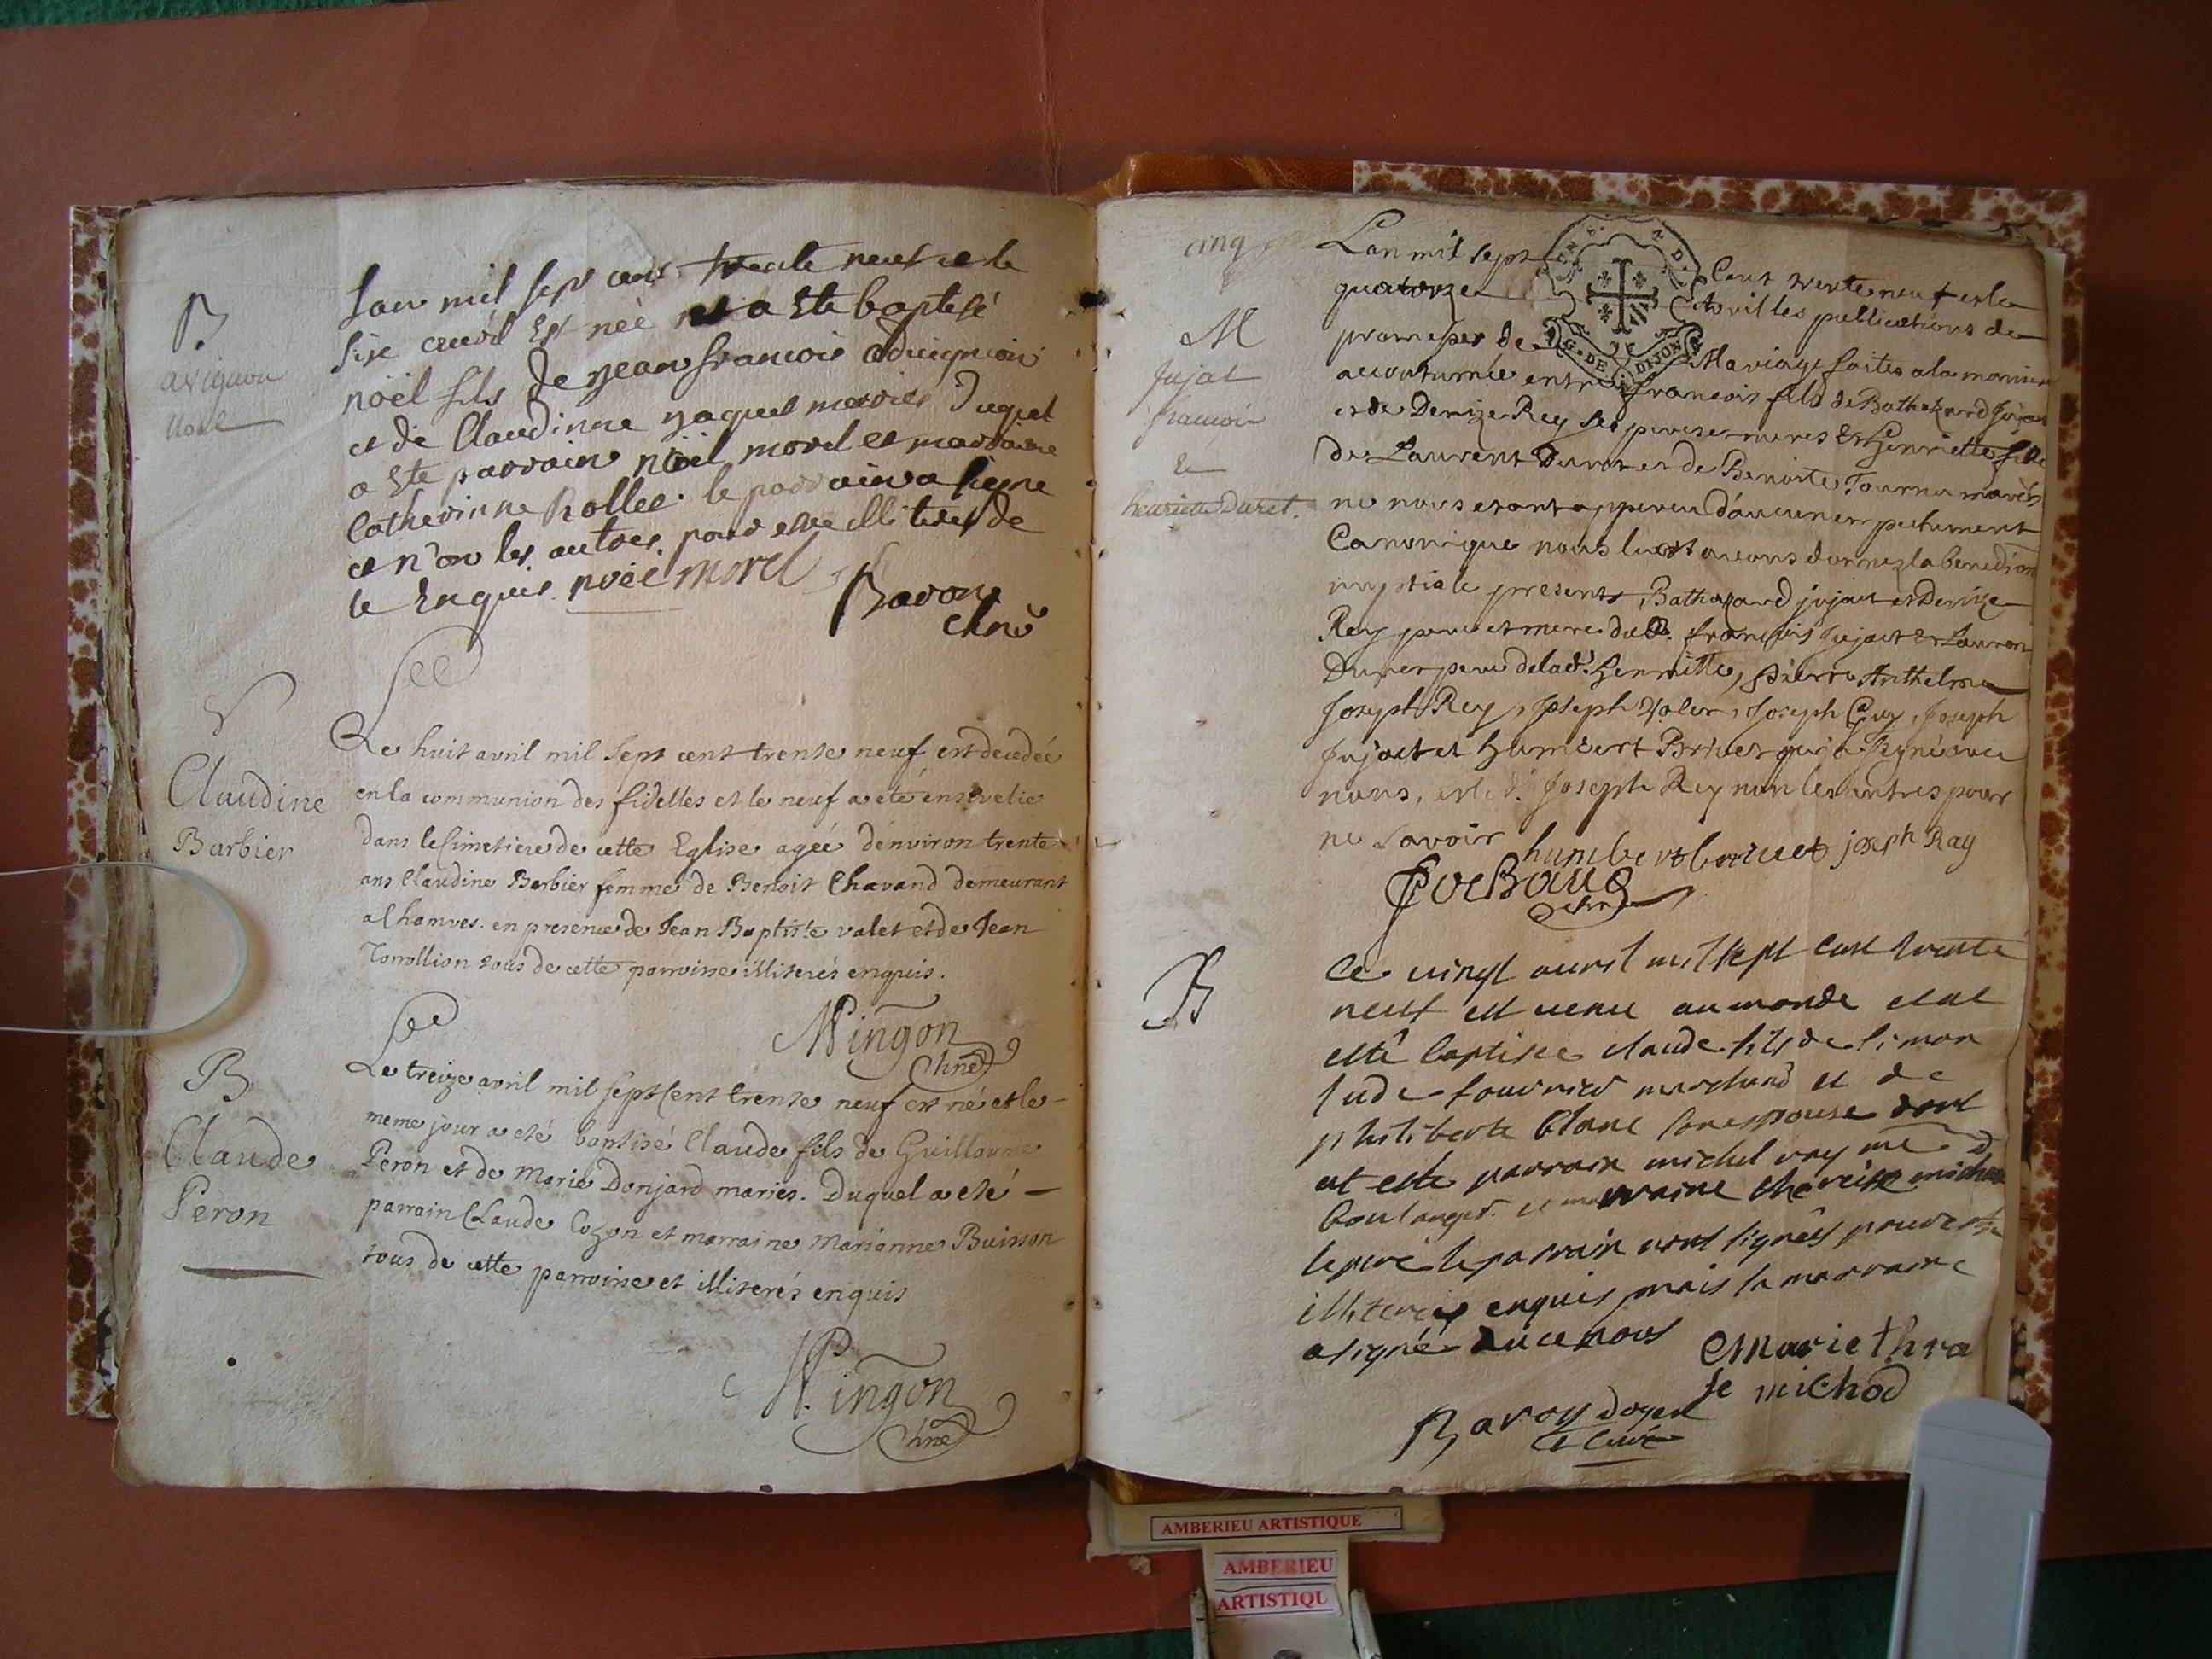 B
avignon
noel
Lan mil sept cent trente neuf et le
sixe avril Est née et a Ete baptisé
noël fils de Jean francois advignion
et de Claudinne jaquet mariés Duquel
a Ete parrain nöel morel et marraine
Catherinne Rollet. le parrain a signe
et n'on les autres pour estre illiteres de
ce Enquis noël morel
Ravon
chne
V
Claudine
Barbier
Le huit avril mil sept cent trente neuf est decedée
en la communion des fidelles et le neuf a eté ensevelie
dans le Cimetiere de cette Eglise agée d'environ trente
ans Claudine Barbier femme de Benoit Chavand demeurant
en presence de Jean Baptiste valet et de Jean
tous de cette parroisse illiterés enquis.
Mingon
chne
B
Claude
Peron
Le treize avril mil sept Cent trente neuf est né et le
meme jour a eté baptisé Claude fils de Guillaume
Peron et de Marie Donjard mariés. Duquel a eté
parrain Claude Cozon et marraine Marianne Buisson
tous de cette parroisse et illiterés enquis
Mingon
chne
cinq
G. DE DIJON
M
Jujat
francois
&
henriette Duret.
Lan mil sept Cent trente neuf et le
quatorze Avril les publications de
promesses de Mariage faites a la maniere
accoutumée entre francois fils de Bathazard Jujat
et de Denize Rey ses pere et meres Et henriette fille
de Laurent Duret et de Benoite Tournu mariés
ne nous etant apperceu d'aucun em pechement
Canonique nous leur avons donnez la benediction
nuptiale presents Bathazard jujat et Denize
Rey pere et mere dud. francois Jujat et Lauren
Duret pere de lad. henriette, pierre Anthelme
Joseph Rey, Joseph Joseph Guy, Joseph
Jujat et humbert Brivet qui a signé avec
nous, et led. Joseph Rey non les autres pour
ne savoir
humbert brivet joseph Ray
chne
B
Le vingt avril mil sept cent trente
neuf est venu au monde et at
esté baptisée claude fils de simon
Jude fournier marchand et de
philiberte blanc son espouse dont
at este parrain michel ray me d
boulanger et marraine therèse michod
le pere le parrain nont signés pour estre
illiterés enquis mais la marraine
a signé avec nous
Marie thra
se michod
Ravon doyen
& Curé
AMBERIEU ARTISTIQUE
AMBERIEU
ARTISTIQU